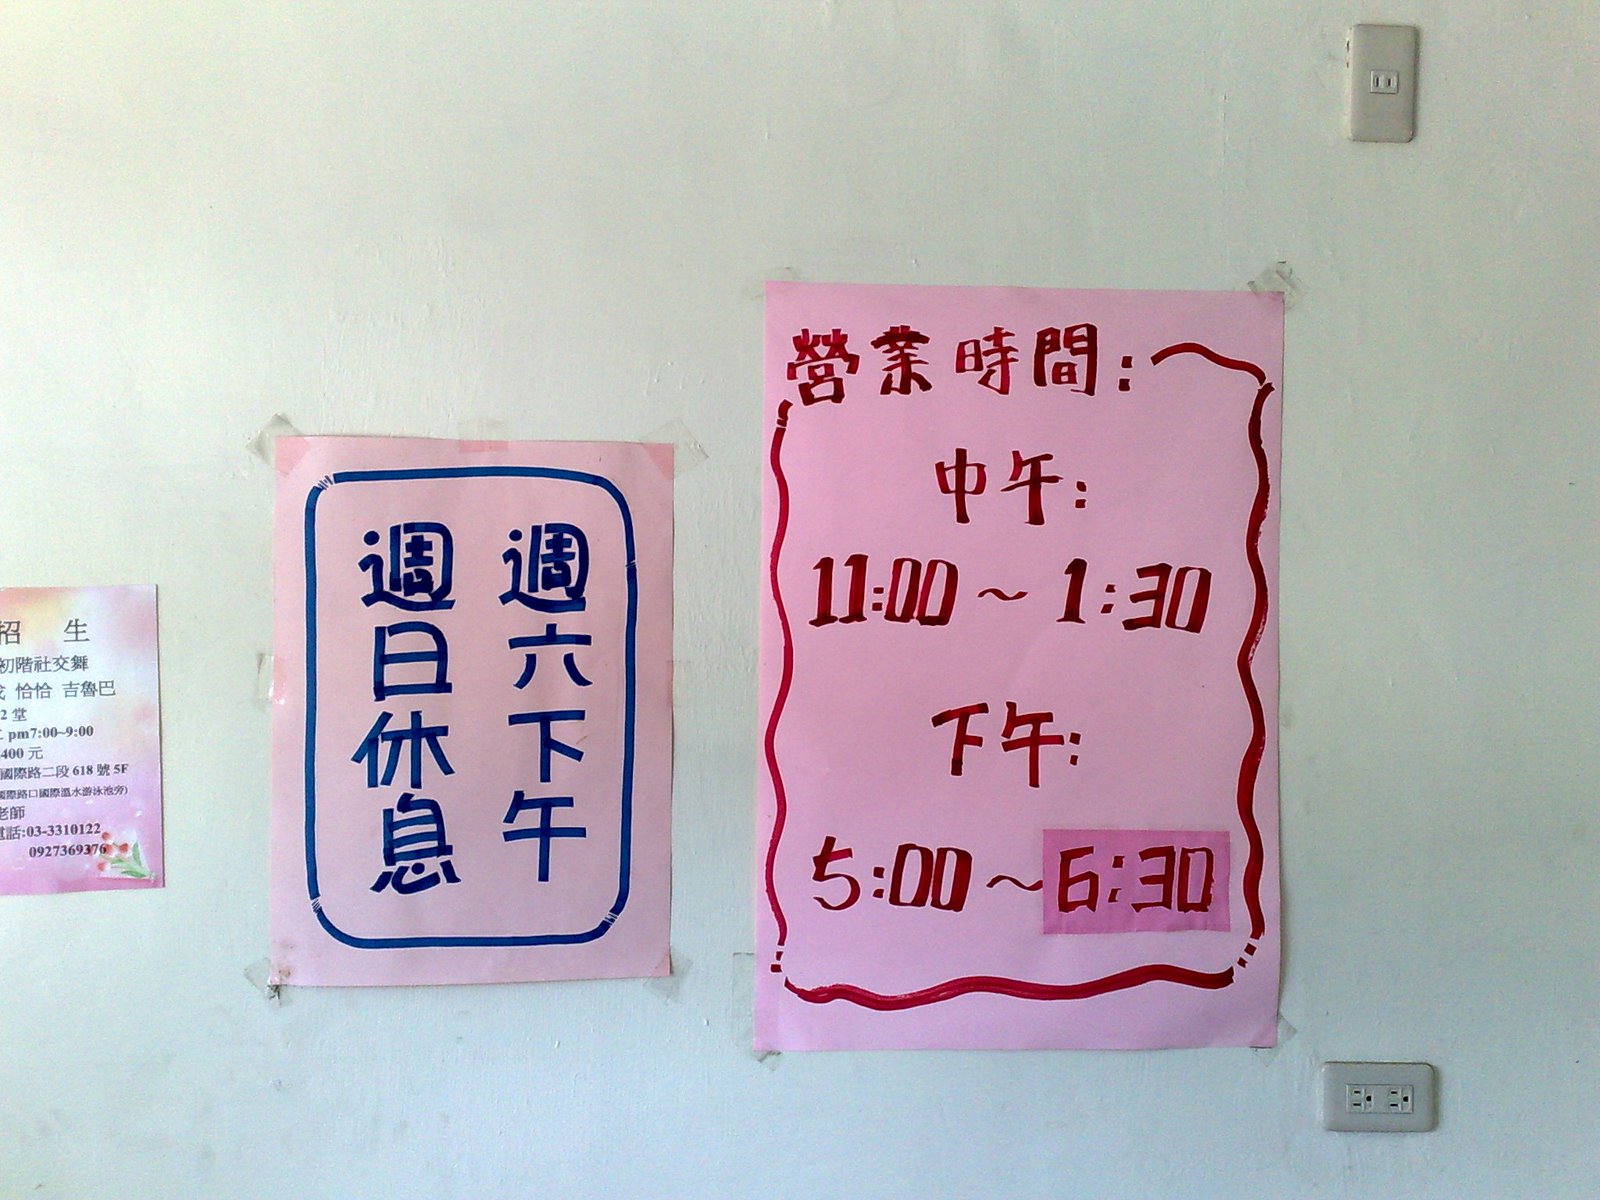 營業時間:
中午:
11:00～1:30
下午:
5:00～6:30
週六下午
週日休息
招 生
初階社交舞
恰恰 吉魯巴
2 堂
pm7:00~9:00
400 元
國際路二段 618 號 5F
國際路口國際溫水游泳池旁)
老師
電話:03-3310122
0927369376